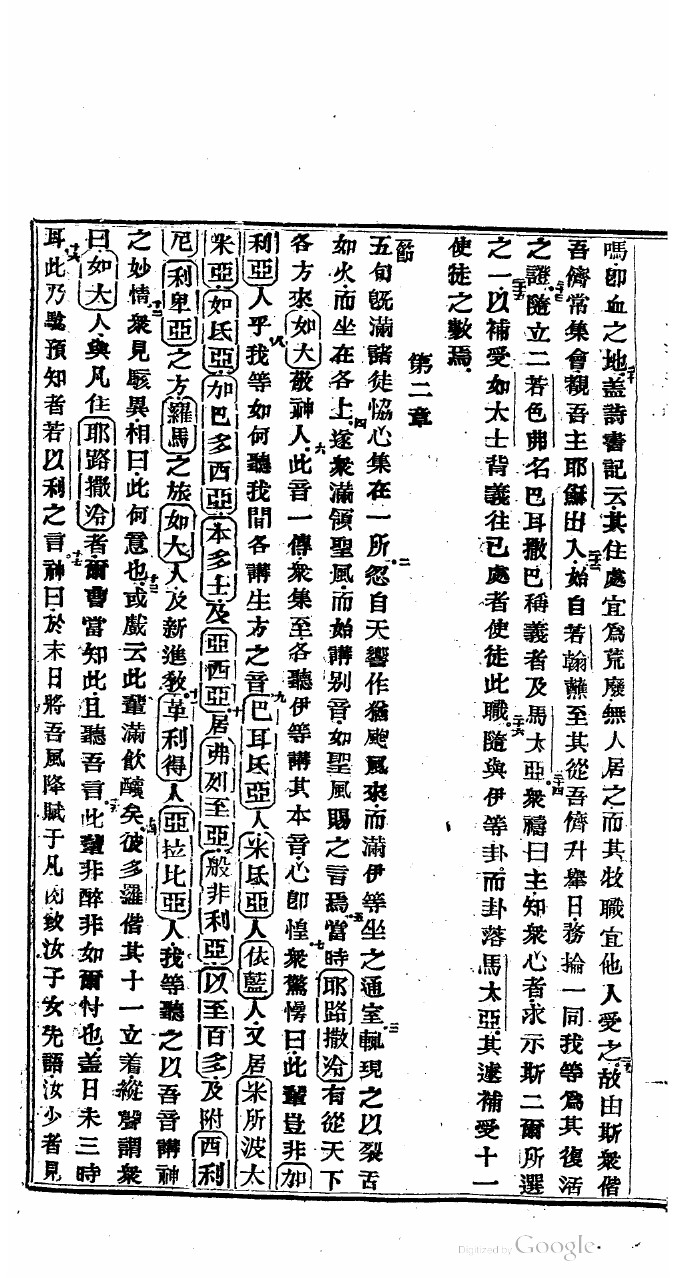 嗎卽血之地蓋詩書記云其住處宜爲荒廢無人居之而其牧職宜他人受之故由斯衆偕
吾儕常集會視吾主耶穌出入始自若翰蘸至其從吾儕升舉日務掄一同我等爲其復活
之證隨立二若色弗名巴耳撒巴稱義者及馬太亞衆禱曰主知衆心者求示斯二爾所選
之一以補受如大士背義往已處者使徒此職隨與伊等卦而卦落馬太亞其逮補受十一
使徒之數焉
第二章
節
五旬旣滿諸徒恊心集在一所忽自天響作猶颷風來而滿伊等坐之通室輒現之以裂舌
如火而坐在各上遂衆滿領聖風而始講别音如聖風賜之言焉當時耶路撒冷有從天下
各方來如大敬神人此音一傳衆集至各聽伊等講其本音心卽惶衆驚愕曰此輩豈非加
利亞人乎我等如何聽我間各講生方之音巴耳氐亞人米氐亞人依藍人又居米所波太
米亞如氐亞加巴多西亞本多士及亞西亞居弗列至亞般非利亞以至百多及附西利
尼利卑亞之方羅馬之旅如大人及新進教革利得人亞拉比亞人我等聽之以吾音講神
之妙情衆見駭異相曰此何意也或戲云此輩滿飲醲矣彼多羅偕其十一立着縱聲謂衆
曰如大人與凡住耶路撒冷者爾曹當知此且聽吾言此輩非醉非如爾忖也蓋日未三時
耳此乃䮄預知者若以利之言神曰於末日將吾風降賦于凡肉致汝子女先語汝少者見
二十
二十一
二十二
二十三
二十四
二十五
二十六
二
三
四
五
六
七
八
九
十
十一
十二
十三
十四
十五
十六
十七
Digitized by Google